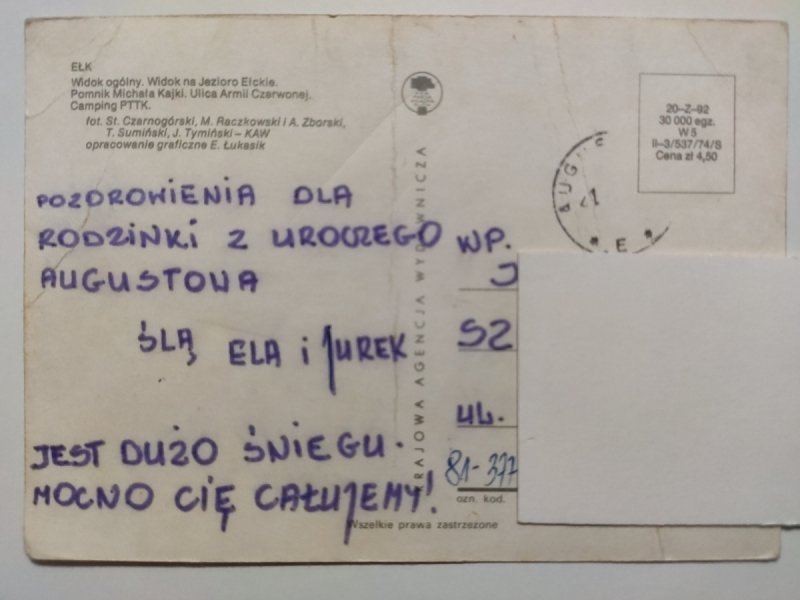 EŁK
Widok ogólny. Widok na Jezioro Ełckie.
Pomnik Michała Kajki. Ulica Armii Czerwonej.
Camping PTTK.
fot. St. Czarnogórski, M. Raczkowski i A. Zborski,
T. Sumiński, J. Tymiński – KAW
opracowanie graficzne E. Łukasik
POZDROWIENIA DLA
RODZINKI Z UROCZEGO
AUGUSTOWA
ŚLĄ ELA i JUREK
JEST DUŻO ŚNIEGU.
MOCNO CIĘ CAŁUJEMY!
KRAJOWA AGENCJA WYDAWNICZA
20–Z–92
30 000 egz.
W 5
II–3/537/74/S
Cena zł 4,50
21
WP.
J
SZ
UL.
81-377
ozn. kod.
Wszelkie prawa zastrzeżone